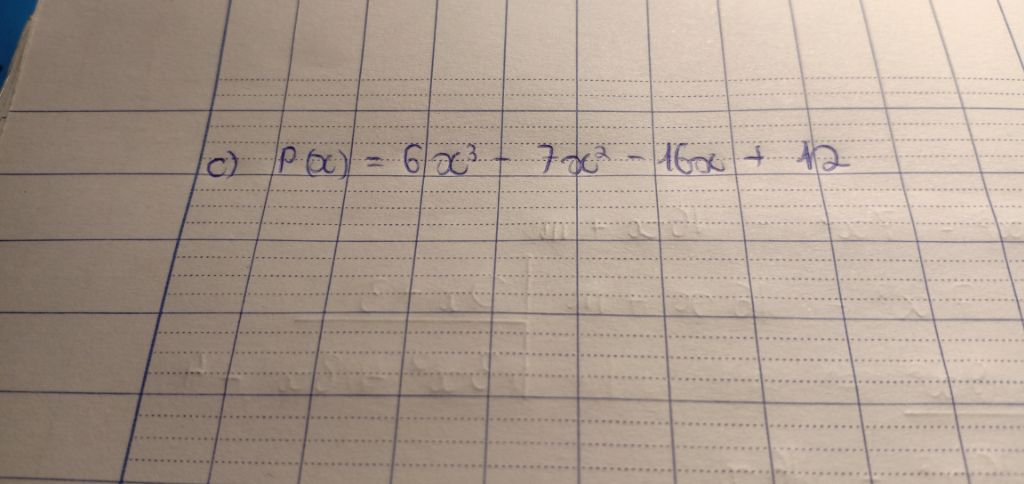 c) P(x) = 6x³ - 7x² - 16x + 12